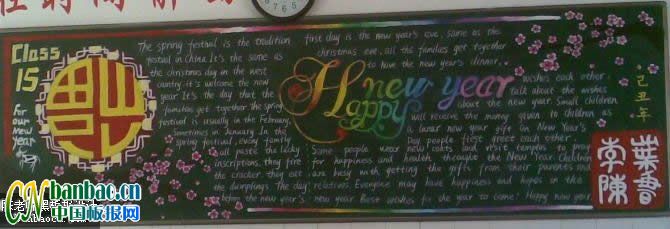 Class
15
for
our
new
year
福
The spring festival is the tradition
festival in China. It's the same as
the christmas day in the west
country it's welcome the new
year. It's the day that the
families get together. The spring
festival is usually in the February,
Sometimes in January. In the
spring festival, every family
all paste the lucky
inscriptions, they fire
the cracker. they eat
the dumplings. The day
before the new year's
first day is the new year's eve, same as the
christmas eve, all the families get together
to have the new year's dinner.
Happy new year
wishes each other.
talk about the wishes
about the new year. Small children
will receive the money given to children as
a lunar new year gift on New Year's
Day people first greet each other
Some people wear new coats and visit temples to pray
for happiness and health the New Year Children
are busy with getting the gifts from their parents and
relatives. Everyone may have happiness and hopes in the
new year Best wishes for the year to come! Happy new year
己丑年
李 葉
陳 曹
CN banbao.cn
中国板报网